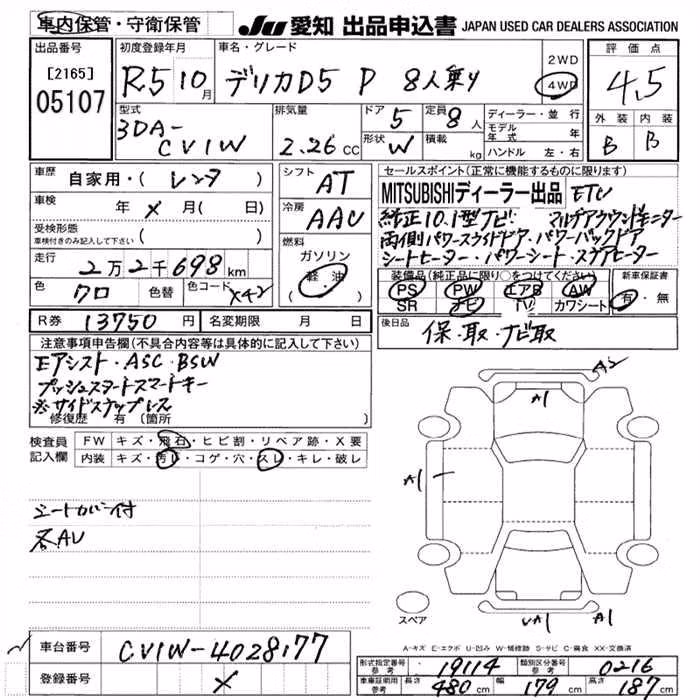 車内保管・守衛保管
JU 愛知 出品申込書 JAPAN USED CAR DEALERS ASSOCIATION
出品番号
[2165]
05107
初度登録年月
R.5 10月
車名・グレード
デリカD5 P 8人乗り
2WD
4WD
評価点
4.5
外装 内装
B B
型式
3DA-CV1W
排気量
2.26 CC
ドア 5
形状 W
定員 8 人
積載 kg
ディーラー・並行
モデル年式 年
ハンドル 左・右
車歴 自家用・( レンタ )
車検 年 × 月( 日)
受検形態
車検付きのみ記入して下さい ( )
走行 2万2千698km
色 クロ 色替 色コード X42
シフト AT
冷房 AAC
燃料
ガソリン
軽・油
セールスポイント(正常に機能するものに限ります)
MITSUBISHIディーラー出品 ETC
純正10.1型ナビ マルチアラウンドモニター
両側パワースライドドア・パワーバックドア
シートヒーター・パワーシート・ステアヒーター
装備品(純正品に限り○をつけてください)
PS PW エアB AW
SR ナビ TV カワシート
新車保証書
有・無
R券 13750 円 名変期限 月 日
後日品 保・取・ナビ取
注意事項申告欄(不具合内容等は具体的に記入して下さい)
Eアシスト・ASC・BSW
プッシュスタートスマートキー
※サイドステップレス
修復歴 有 〔箇所 〕
検査員記入欄
FW キズ・飛石・ヒビ割・リペア跡・X要
内装 キズ・汚れ・コゲ・穴・スレ・キレ・破レ
シートカバー付
各AU
A2
A1
A1
A1
スペア
A-キズ E-エクボ U-凹み W-補修跡 S-サビ C-腐食 XX-交換済
車台番号 CV1W-4028177
登録番号 ×
形式指定番号 参考 19114 類別区分番号 参考 0216
車庫証明用 参考 長さ 480 cm 幅 179 cm 高さ 187 cm